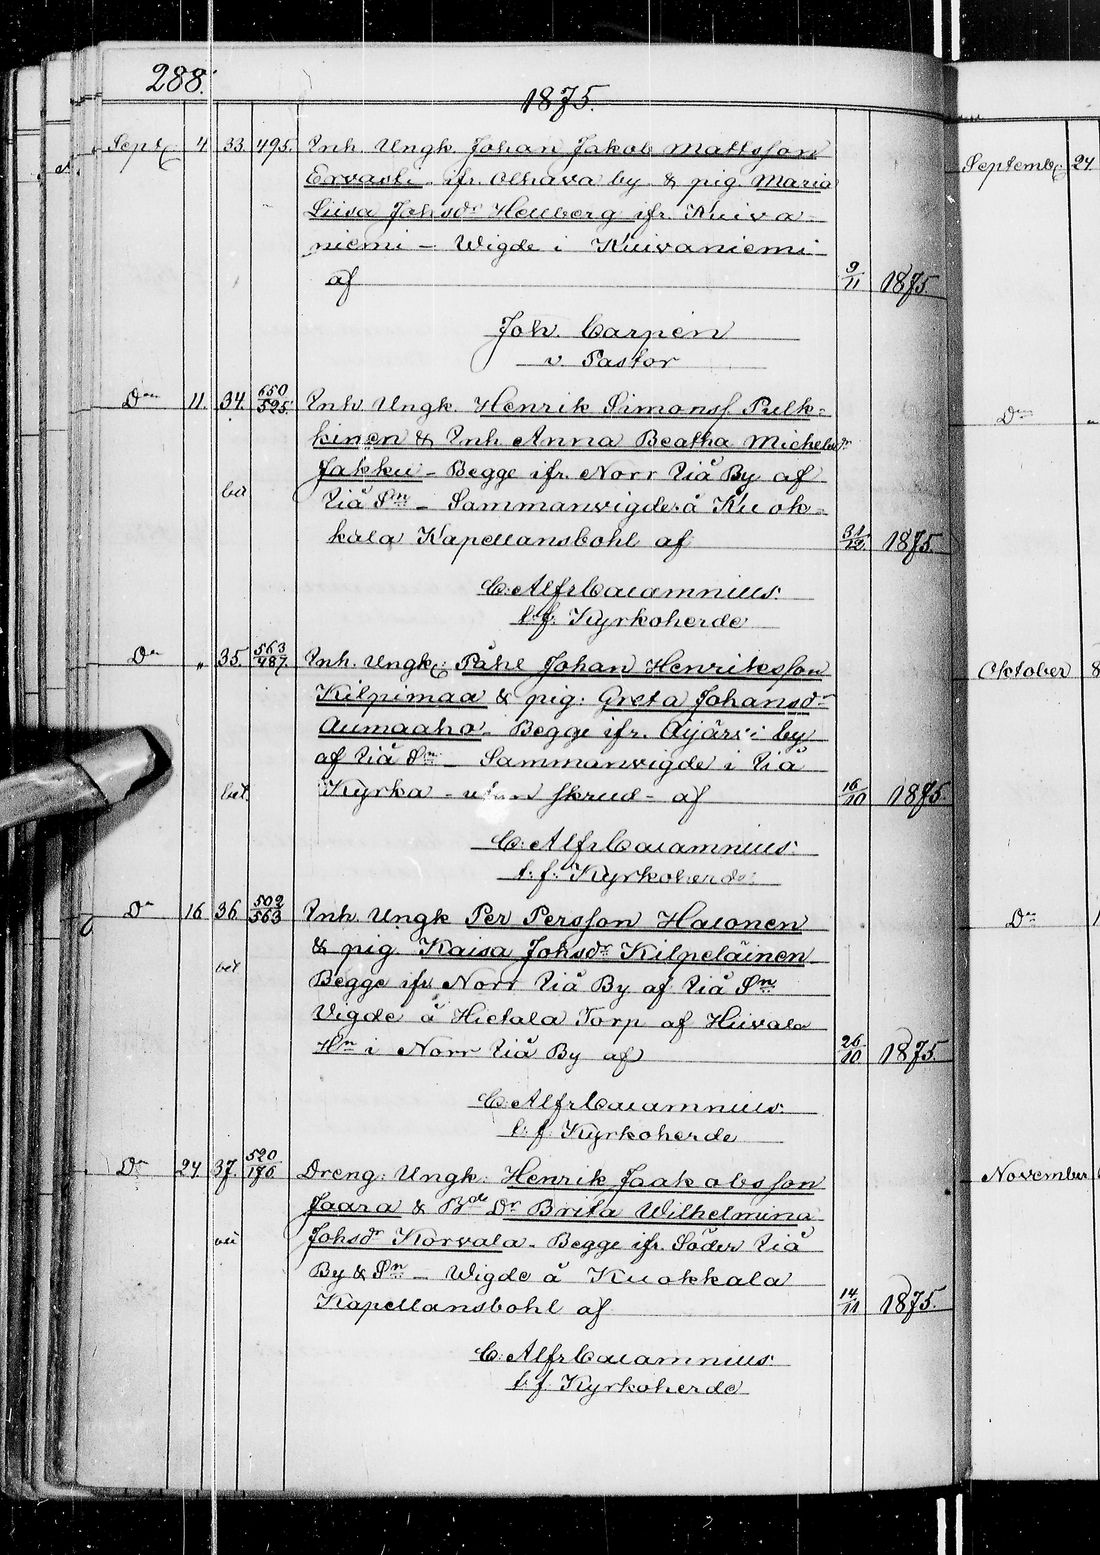 288.
1875.
Sept. 4 33. 495. Inh. Ungk Johan Jakob Mattsson
Ervasti ifr. Olhava by & pig Maria
Liisa Johsdr Heuberg ifr. Kuiva-
niemi - Wigde i Kuivaniemi
af 9/11 1875
Joh. Carpén
v. Pastor
Do 11. 34. 650/525. Inh Ungk. Henrik Simonss. Pulk-
kinen & Inh Anna Beatha Michelsdr
Jakku - Begge ifr. Norr Iiå By af
bet Iiå Sn - Sammanvigde å Kuok-
kala Kapellansbohl af 31/12. 1875.
C. Alfr Calamnius.
t. f. Kyrkoherde
Do " 35. 563/487. Inh. Ungk: Påhl Johan Henriksson
Kilpimaa & pig: Greta Johansdr
Aumaaho - Begge ifr. by
af Iiå Sn - Sammanvigde i Iiå
bet. Kyrka - skrud - af 16/10 1875.
C. Alfr Calamnius.
t. f. Kyrkoherde
Do 16 36 502/563 Inh Ungk Per Persson Halonen
& pig Kaisa Johsdr Kilpeläinen
bet Begge ifr. Norr Iiå By af Iiå Sn
Vigde å Hietala Torp af Hiivala
Hn i Norr Iiå By af 26/10 1875.
C. Alfr Calamnius.
t. f. Kyrkoherde
Do 24 37. 520/176. Dreng: Ungk: Henrik Jaakobsson
Jaara & Bde Dr Brita Wilhelmina
Johsdr Korvala - Begge ifr. Söder Iiå
By & Sn - Wigde å Kuokkala
Kapellansbohl af 14/11 1875.
C. Alfr Calamnius.
t. f. Kyrkoherde
September 24
Do "
Oktober 8
Do 1
November